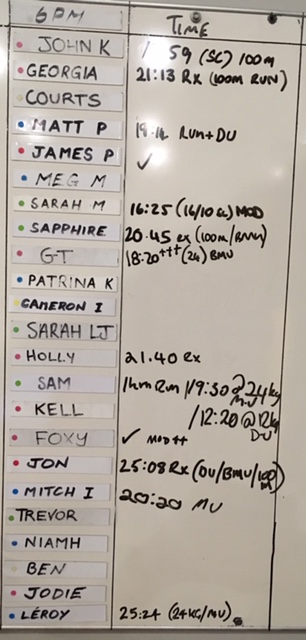 6PM TIME
JOHN K 59 (SC) 100m
GEORGIA 21:13 Rx (100m RUN)
COURTS
MATT P 19.14 RUN+DU
JAMES P ✓
MEG M
SARAH M 16:25 (16/10 SL) MOD
SAPPHIRE 20.45 rx (100m/BMU)
GT 18:20+++ (24) BMU
PATRINA K
CAMERON I
SARAH LJ
HOLLY 21.40 Rx
SAM 1km Run /19:30 @ 24kg
MU
KELL /12:20 @ 12kg
DU
FOXY ✓ MOD++
JON 25:08 Rx (DU/BMU/100
M)
MITCH I 20:20 MU
TREVOR
NIAMH
BEN
JODIE
LÉROY 25:24 (24KG/MU)